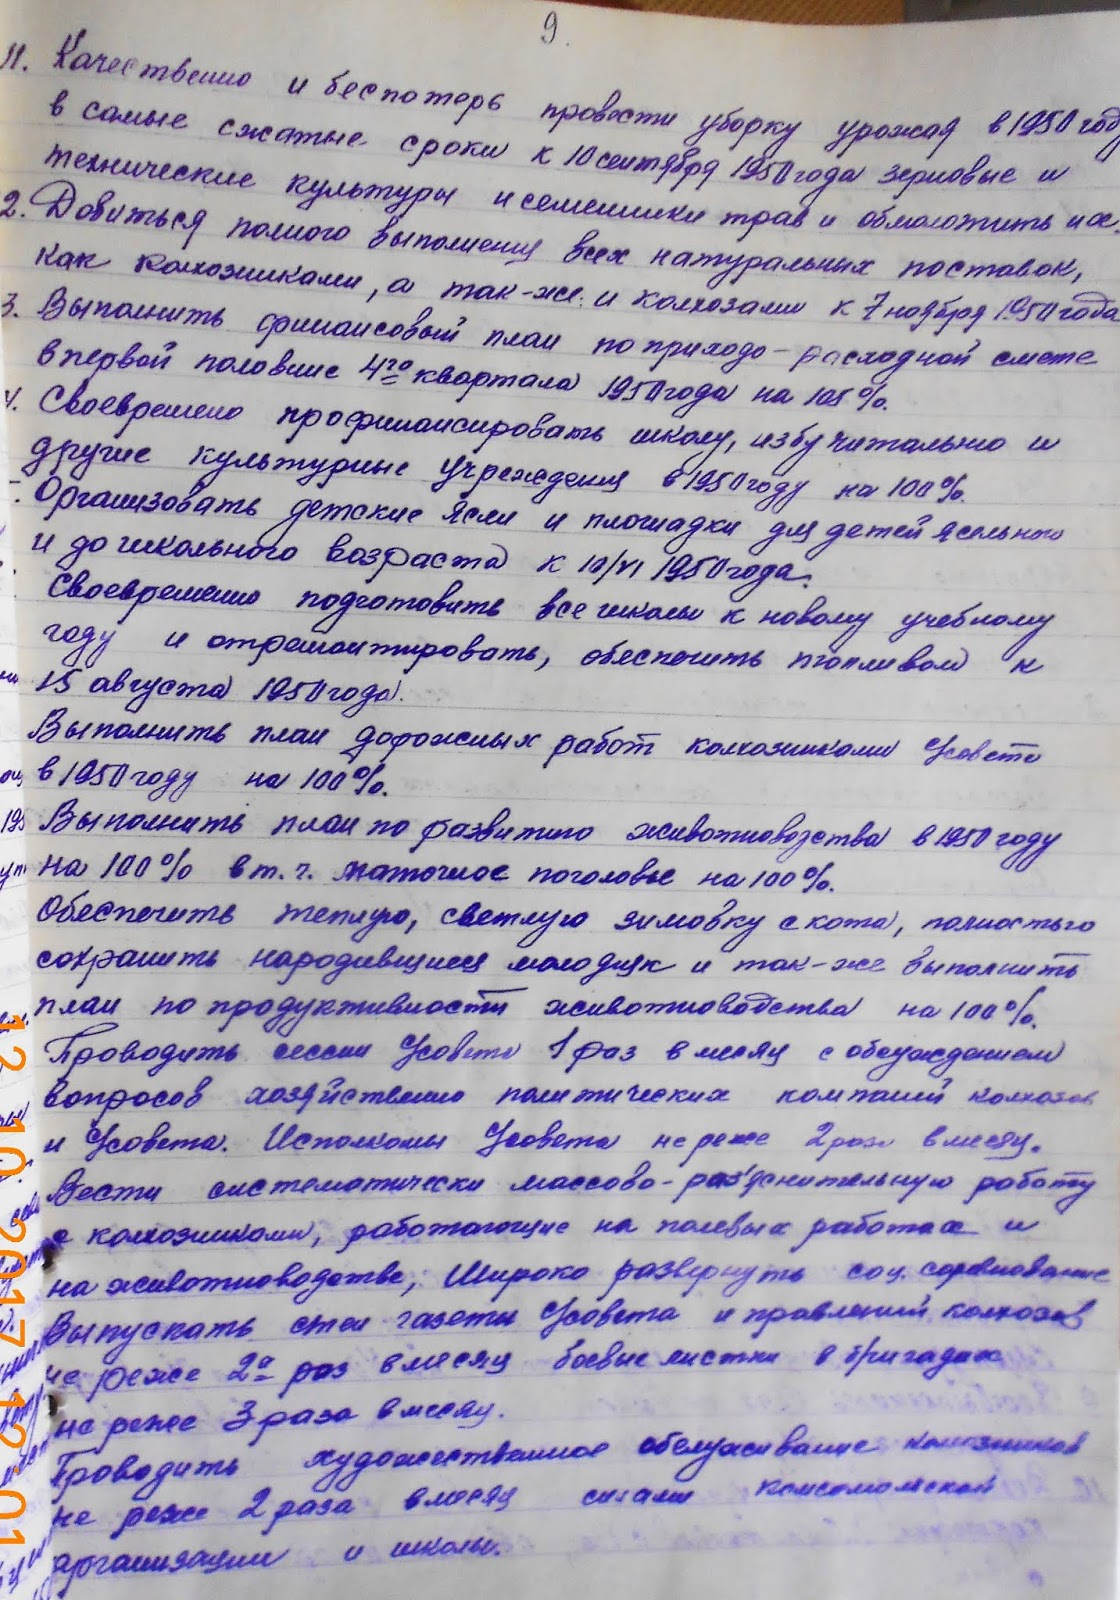 9.
11. Качественно и беспотерь провести уборку урожая в 1950 год
в самые сжатые сроки к 10 сентября 1950 года зерновые и
технические культуры и семенники трав и обмолотить
2. Добиться полного выполнения всех натуральных поставок,
как колхозниками, а так-же и колхозами к 7 ноября 1950 года
3. Выполнить финансовый план по приходо-расходной смете
в первой половине 4го квартала 1950 года на 105%.
4. Своевремено профинансировать школу, избу читальню и
другие культурные учреждения в 1950 году на 100%.
Организовать детские ясли и площадки для детей ясельного
и до школьного возраста к 10/VI 1950 года.
Своевременно подготовить все школы к новому учебному
году и отремонтировать, обеспечить топливом к
15 августа 1950 года.
Выполнить план дорожных работ колхозниками с/совета
в 1950 году на 100%.
Выполнить план по развитию животноводства в 1950 году
на 100% в т.ч. маточное поголовье на 100%.
Обеспечить теплую, светлую зимовку скота, полностью
сохранить народившийся молодняк и так-же выполнить
план по продуктивности животноводства на 100%.
Проводить сессии с/совета 1 раз в месяц с обсуждением
вопросов хозяйственно политических компаний колхозов
и с/совета. Исполкомы с/совета не реже 2 раза в месяц.
Вести систематически массово-раз'яснительную работу
с колхозниками, работающие на полевых работах и
на животноводстве, Широко развернуть соц. соревнование
Выпускать стен газеты с/совета и правлений колхозов
не реже 2а раз в месяц боевые листки в бригадах
не реже 3 раза в месяц.
Проводить художественное обслуживание колхозников
не реже 2 раза в месяц силами комсомольской
организации и школы.
12 10 2017 12:01